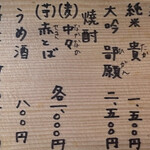 純米 貴 一、五〇〇円
大吟 鄙願 二、五〇〇円
焼酎
(麦) 中々
(芋) 赤とば 各一〇〇〇円
うめ酒 八〇〇円